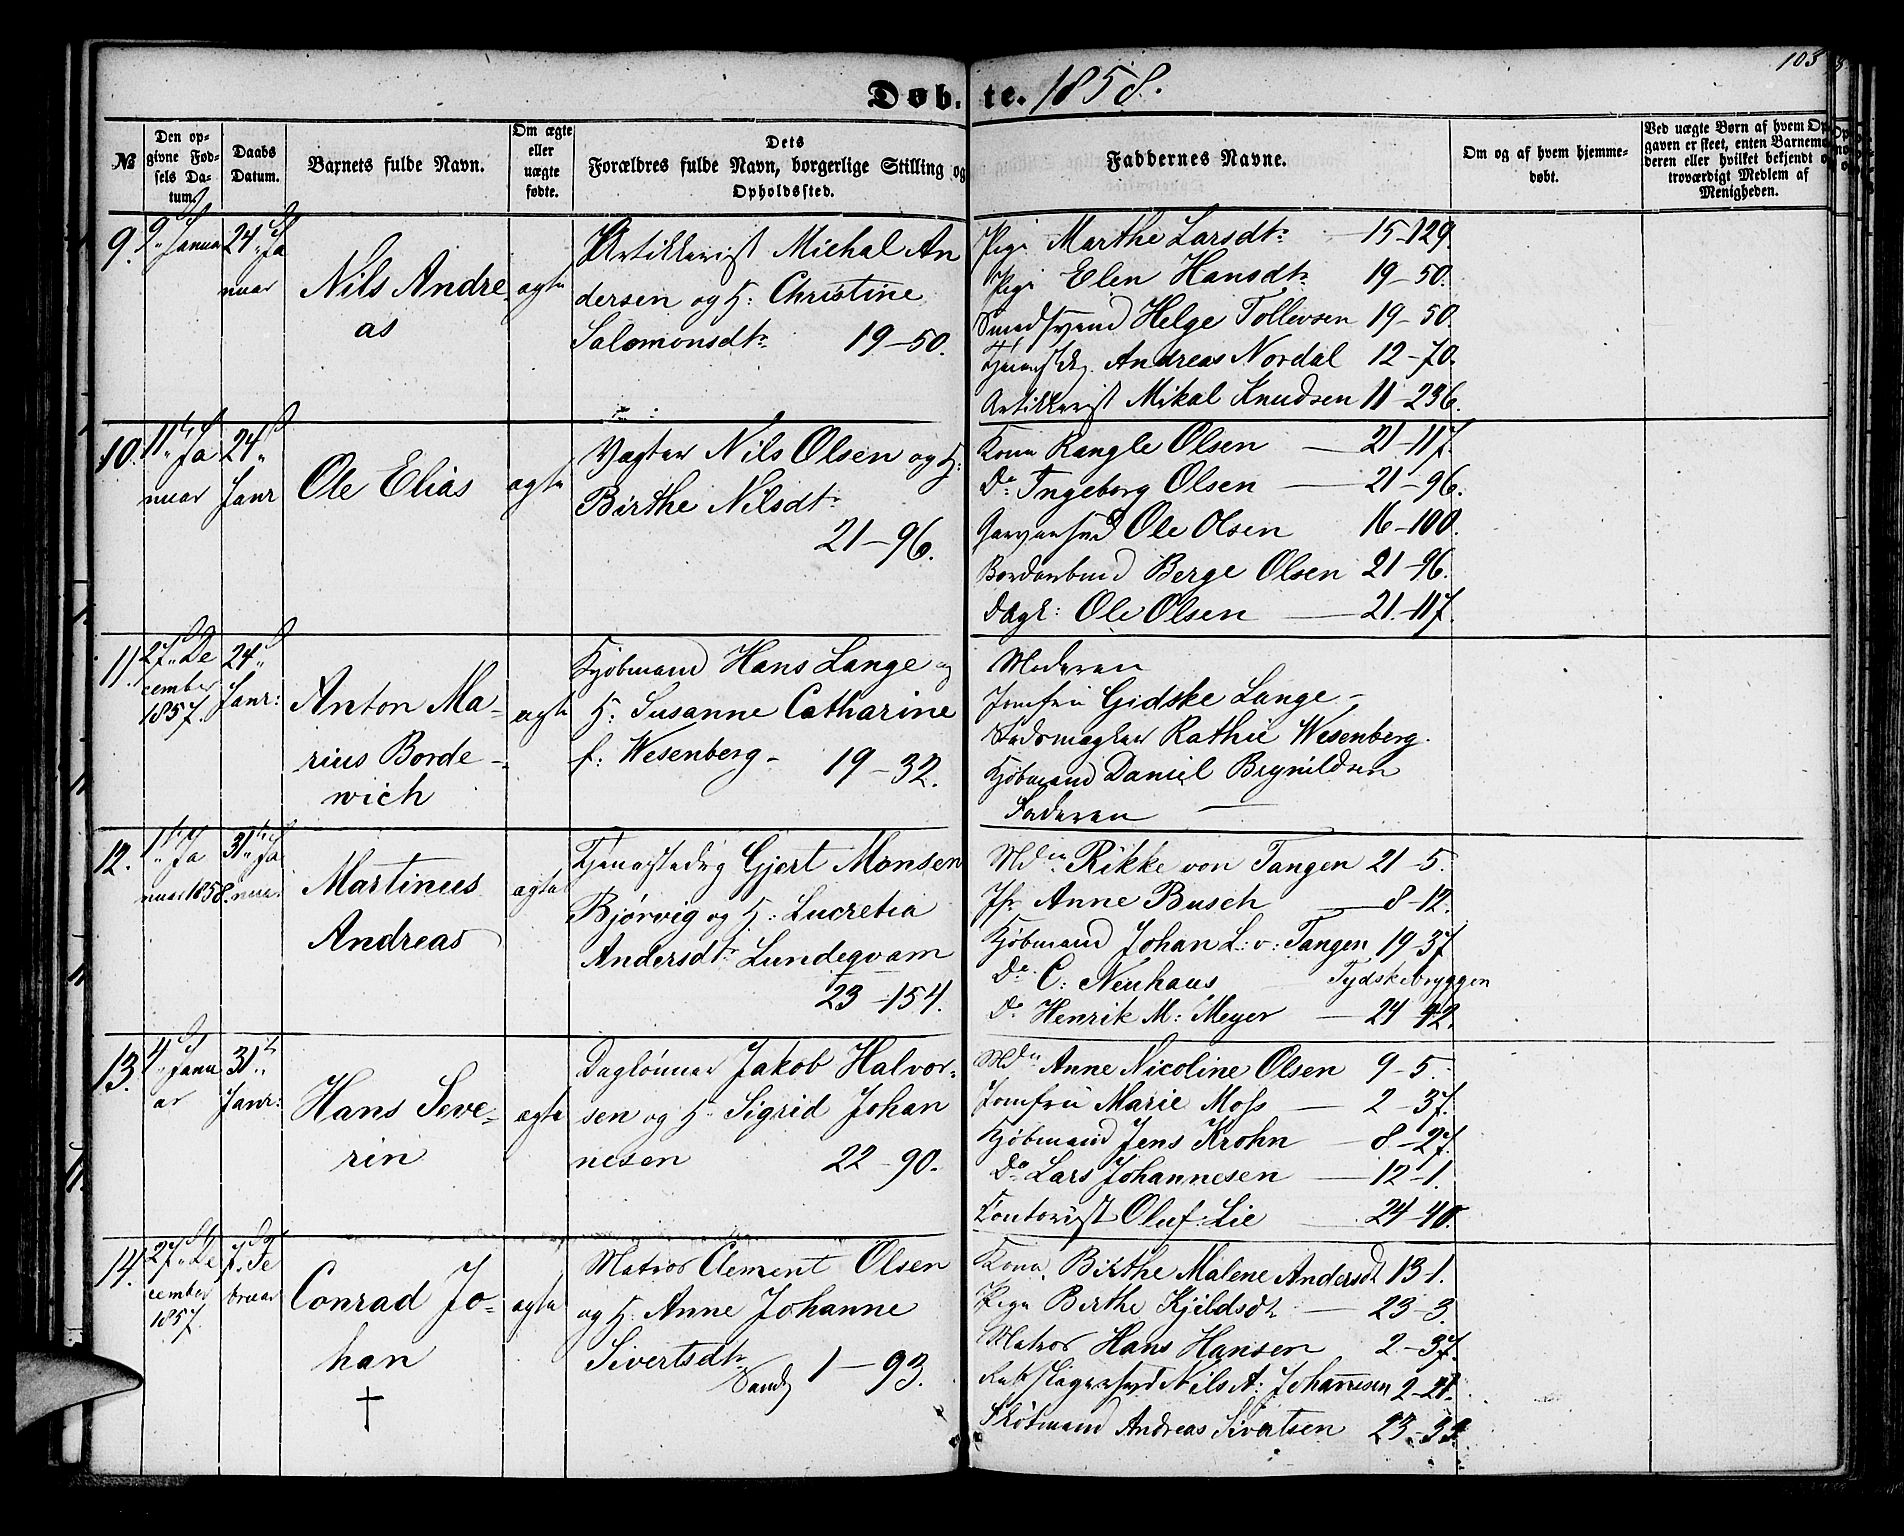 103
Døbte. 1858.
№
Den opgivne Fødsels Datum.
Daabs Datum.
Barnets fulde Navn.
Om ægte eller uægte fødte.
Dets Forældres fulde Navn, borgerlige Stilling og Opholdssted.
Faddernes Navne.
Om og af hvem hjemmedøbt.
Ved uægte Børn af hvem Opgaven er skeet, enten Barnemoderen eller hvilket bekjendt og troværdigt Medlem af Menigheden.
9.
2d Janua
24d Ja
nuar
Nils Andre
as
ægte
Artillerist Michal An
dersen og H: Christine
Salomonsdtr 19-50.
Pige Marthe Larsdtr 15-129.
Pige Elen Hansdtr 19-50.
Smedsvend Helge Tollevsen 19-50.
Tjenestdrg. Andreas Nordal 12-70.
Artillerist Mikal Knudsen 11-236.
10.
11te Ja
nuar
24d
Janr
Ole Elias
ægte
Vægter Nils Olsen og H:
Birthe Nilsdtr
21-96.
Kone Rangle Olsen 21-117.
Do Ingeborg Olsen 21-96.
Garversvd Ole Olsen 16-100.
Berge Olsen 21-96.
Dagl: Ole Olsen 21-117.
11.
27d De
cember
1857.
24d
Janr:
Anton Ma-
rius Borde-
wich
ægte
Kjøbmand Hans Lange og
H: Susanne Catharine
f: Wesenberg- 19-32.
Moderen
Jomfru Gidske Lange-
Rathie Wesenberg.
Kjøbmand Daniel Brynildsen
Faderen
12.
1te Ja
nuar 1858.
31te Ja
nuar.
Martinus
Andreas
ægte
Tjenestedrg Gjert Monsen
Bjørvig og H: Lucretia
Andersdtr Lundeqvam
23-154.
Mdm Rikke von Tangen 21-5.
Jfr Anne Busch 8-12.
Kjøbmand Johan L: v: Tangen 19-37
Do C: Neuhaus Tydskebryggen
Do Henrik M: Meyer 24-42.
13.
4d Janu
ar
31te
Janr:
Hans Seve-
rin
ægte
Daglønner Jakob Halvor-
sen og H. Sigrid Johan
nesen 22-90.
Mdm Anne Nicoline Olsen 9-5.
Jomfru Marie Moss 2-37.
Kjøbmand Jens Krohn 8-27.
Do Lars Johannesen 12-1.
Contorist Oluf Lie 24-40.
14.
27d De
cember
1857.
7d Fe
bruar
Conrad Jo-
han
†
ægte
Matros Clement Olsen
og H. Anne Johanne
Sivertsdtr 1-93.
Kone Birthe Malene Andersdt 13-1.
Pige Berthe Kjeldsdt 23-3.
Matros Hans Hansen 2-37.
Rebslagersvd Nils A: Johannesen 2-21.
Andreas Sivertsen 23-33.